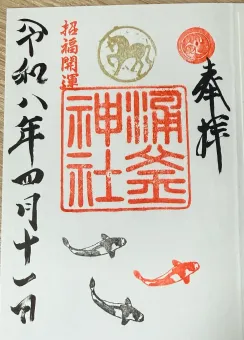 奉拝
涌釜神社
招福開運
令和八年四月十一日